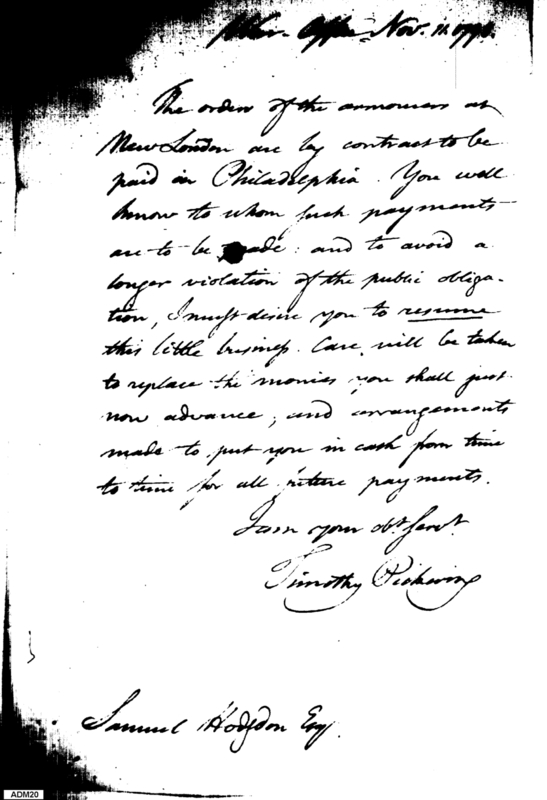 War Office Nov. 11. 179
The orders of the armourers at
New London are by contract to be
paid in Philadelphia. You well
know to whom such payments
are to be made: and to avoid a
longer violation of the public obliga-
tion, I must desire you to resume
this little business. Care will be taken
to replace the monies you shall just
now advance; and arrangements
made to put you in cash from time
to time for all future payments.
I am your obt. servt.
Timothy Pickering
Samuel Hodgdon Esq.
ADM20